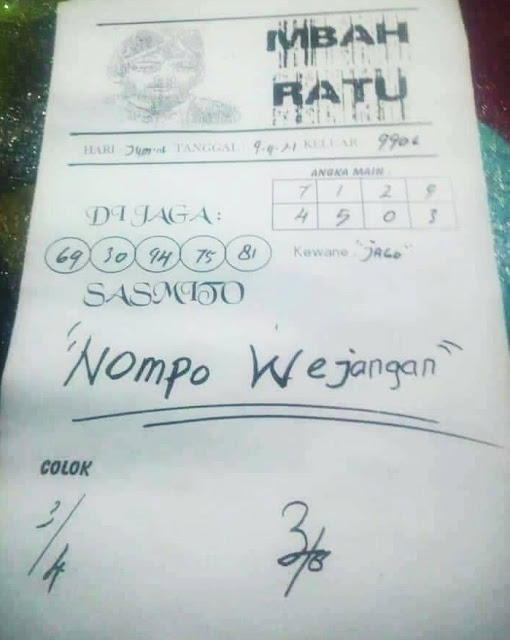 MBAH
RATU
HARI : Jum'at TANGGAL : 9-4-21 KELUAR 9906
ANGKA MAIN
7 1 2 9
4 5 0 3
DI JAGA :
69 30 94 75 81
Kewane : "JAGO"
SASMITO
"Nompo Wejangan"
COLOK
3/4
3/8